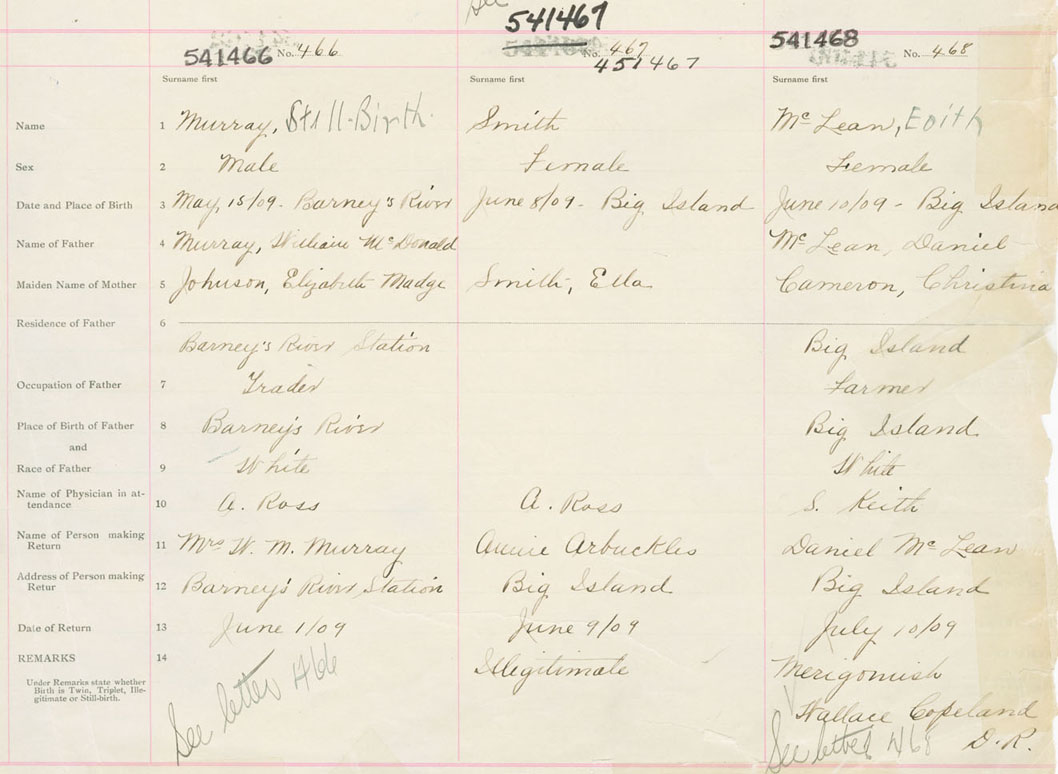 See
541467
541466 No. 466
No. 467
451467
541468 No. 468
Surname first Surname first Surname first
Name 1 Murray, Still-Birth Smith Mc Lean, Edith
Sex 2 Male Female Female
Date and Place of Birth 3 May, 15/09 - Barney's River June 8/09 - Big Island June 10/09 - Big Island
Name of Father 4 Murray, William McDonald Mc Lean, Daniel
Maiden Name of Mother 5 Johnson, Elizabeth Madge Smith, Ella Cameron, Christina
Residence of Father 6
Barney's River Station Big Island
Occupation of Father 7 Trader Farmer
Place of Birth of Father 8 Barney's River Big Island
and
Race of Father 9 White White
Name of Physician in at-
tendance 10 A. Ross A. Ross S. Keith
Name of Person making
Return 11 Mrs W. M. Murray Annie Arbuckles Daniel Mc Lean
Address of Person making
Retur 12 Barney's River Station Big Island Big Island
Date of Return 13 June 1/09 June 9/09 July 10/09
REMARKS 14 Illegitimate Merigomish
Under Remarks state whether
Birth is Twin, Triplet, Ille-
gitimate or Still-birth.
See letter 466
Wallace Copeland
D. R.
See letter 468